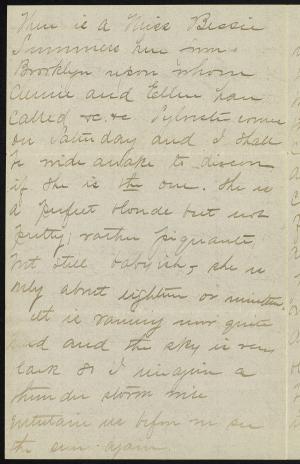 There is a Miss Bessie
Summers here from
Brooklyn upon whom
Annie and Ellen have
called &c. &c Sylvester comes
on Saturday and I shall
be wide awake to discern
if she is the one. She is
a perfect blonde but not
pretty; rather piquante,
but still babyish, she is
only about eighteen or nineteen.
It is raining now quite
hard and the sky is very
dark so I imagine a
thunder storm will
entertain us before we see
the sun again